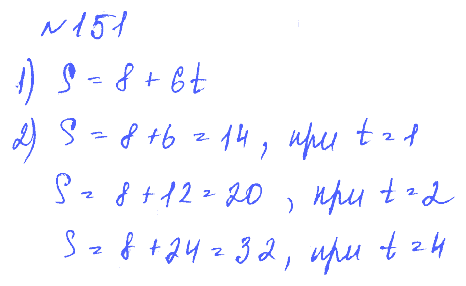 №151
1) S = 8 + 6t
2) S = 8 + 6 = 14, при t = 1
S = 8 + 12 = 20, при t = 2
S = 8 + 24 = 32, при t = 4